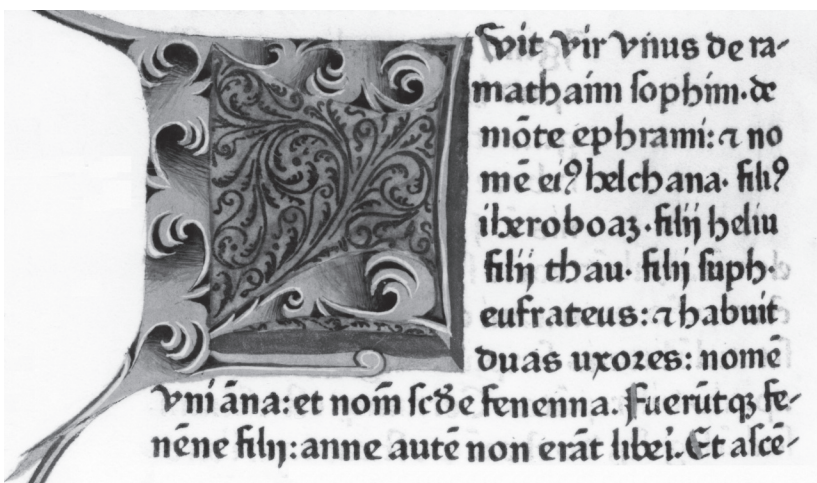 Fvit vir vnus de ra-
mathaim ſophim. de
mōte ephrami: ⁊ no
mē eiꝰ helchana. filiꝰ
iheroboaz. filij heliu
filij thau. filij ſuph.
eufrateus: ⁊ habuit
duas uxoꝛes: nomē
vni āna: et nom̄ ſcd̄e fenenna. Fuerūtqꝫ fe-
nēne filij: anne autē non erāt libei. Et aſcē-